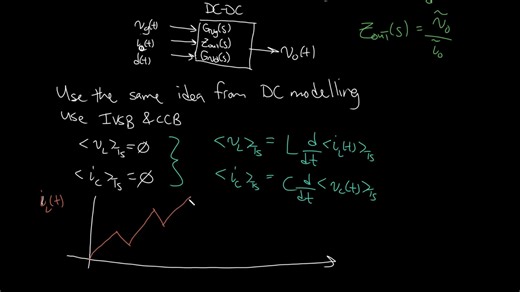 DC-DC
v_g(t)
G_vg(s)
i_o(t)
Z_out(s)
d(t)
G_vd(s)
v_o(t)
Z_out(s) = ṽ_o / ĩ_o
Use the same idea from DC modelling
use IVSB & CCB
<v_L>_Ts = ∅
<v_L>_Ts = L d/dt <i_L(t)>_Ts
<i_c>_Ts = ∅
<i_c>_Ts = C d/dt <v_c(t)>_Ts
i_L(t)